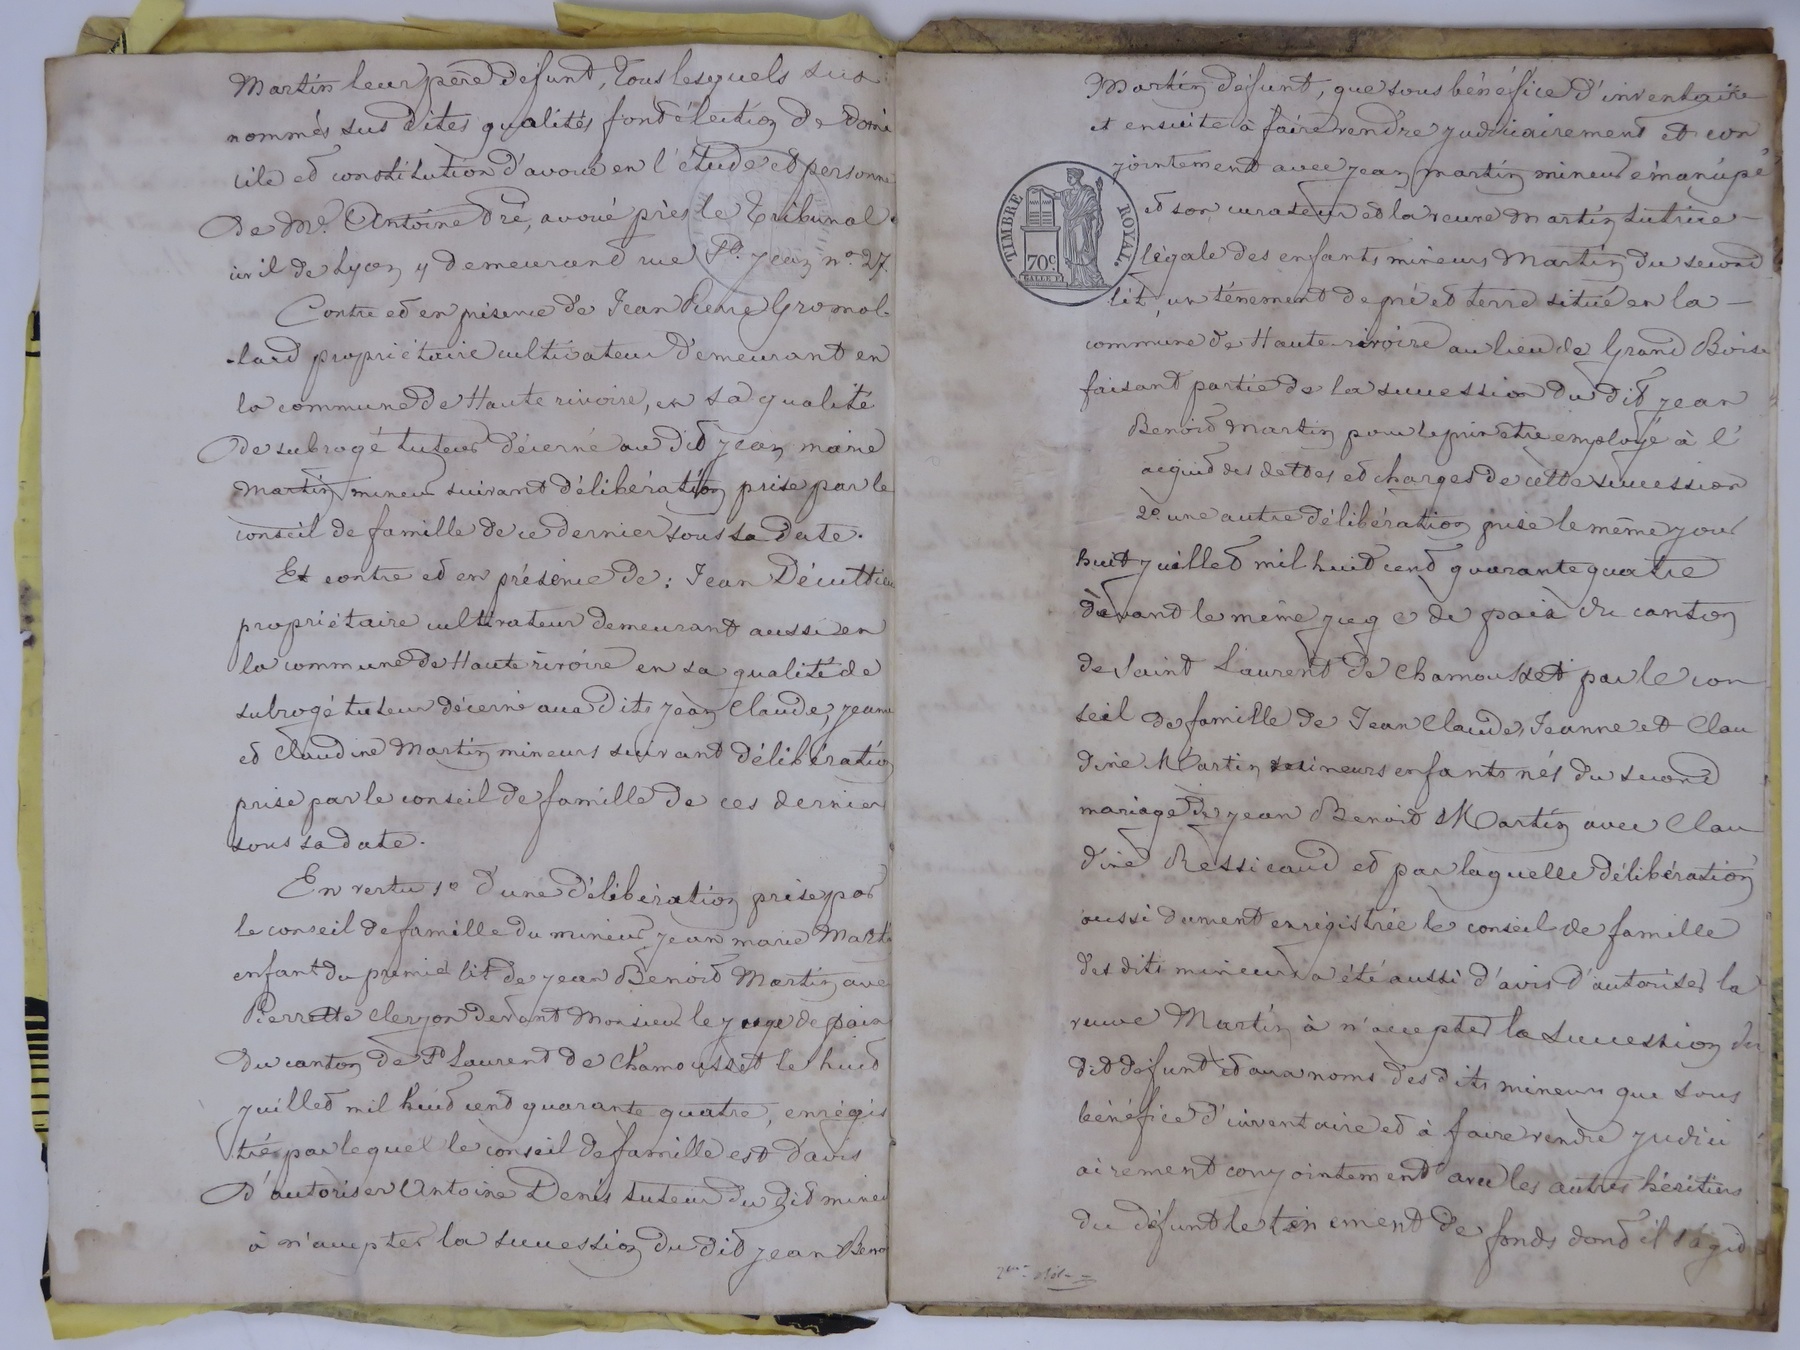 Martin leur père défunt, Tous lesquels sus
nommés sus dites qualités font élection de domi
cile et constitution d'avoué en l'étude et personne
de Me. Antoine Dré, avoué près le Tribunal
civil de Lyon y demeurant rue St. Jean no. 27.
Contre et en présence de Jean Pierre Gromol-
-lard propriétaire cultivateur demeurant en
la commune de Haute rivoire, en sa qualité
de subrogé tuteur décerné au dit jean marie
martin mineur suivant délibération prise par le
conseil de famille de ce dernier sous sa date.
Et contre et en présence de : Jean Décultieu
propriétaire cultivateur demeurant aussi en
la commune de Haute rivoire en sa qualité de
subrogé tuteur décerné aux dits jean Claude, jeanne
et Claudine Martin mineurs suivant délibération
prise par le conseil de famille de ces dernier
sous sa date.
En vertu 1o d'une délibération prise par
le conseil de famille du mineur jean marie Martin
enfant du premier lit de jean Benoit Martin avec
Pierrette Cleyzon devant Monsieur le juge de paix
du canton de St Laurent de Chamousset le huit
juillet mil huit cent quarante quatre, enrégis
trée par lequel le conseil de famille est d'avis
d'autoriser Antoine Denis tuteur du dit mineur
à n'accepter la succession du dit jean Benoi
Martin défunt, que sous bénéfice d'inventaire
et ensuite à faire vendre judiciairement et con
jointement avec jean martin mineur émancipé
et son curateur et la veuve Martin tutrice -
légale des enfants mineurs Martin du second
lit, un ténement de pré et terre situé en la -
commune de Haute-rivoire au lieu de Grand Bois
faisant partie de la succession du dit jean
Benoit Martin pour le prix être employé à l'
acquit des dettes et charges de cette succession
2o. une autre délibération prise le même jour
huit juillet mil huit cent quarante quatre
devant le même juge de paix du canton
de Saint Laurent de Chamousset par le con
seil de famille de Jean Claude, Jeanne et Clau
dine Martin mineurs enfants nés du second
mariage de jean Benoit Martin avec Clau
dine Ressicaud et par laquelle délibération
aussi dument enrégistrée le conseil de famille
des dits mineurs a été aussi d'avis d'autoriser la
veuve Martin à n'accepter la succession du
dit défunt et aux noms des dits mineurs que sous
bénéfice d'inventaire et à faire vendre judici
airement conjointement avec les autres héritiers
du défunt le tènement de fonds dont il s'agit
TIMBRE ROYAL.
70c